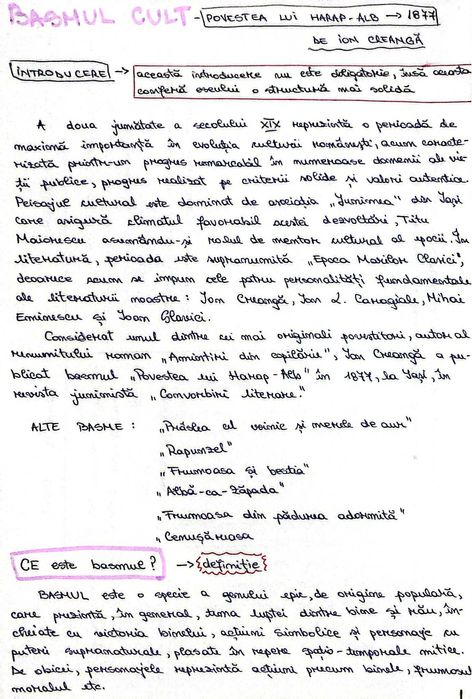 BASMUL CULT - POVESTEA LUI HARAP-ALB → 1877
DE ION CREANGĂ
INTRODUCERE → această introducere nu este obligatorie, însă aceasta
conferă eseului o structură mai solidă
A doua jumătate a secolului XIX reprezintă o perioadă de
maximă importanță în evoluția culturii românești, acum caracte-
rizată printr-un progres remarcabil în numeroase domenii ale vie-
ții publice, progres realizat pe criterii solide și valori autentice.
Peisajul cultural este dominat de asociația „Junimea” din Iași
care asigură climatul favorabil acestei dezvoltări, Titu
Maiorescu asumându-și rolul de mentor cultural al epocii. În
literatură, perioada este supranumită „Epoca Marilor Clasici”,
deoarece acum se impun cele patru personalități fundamentale
ale literaturii noastre: Ion Creangă, Ion L. Caragiale, Mihai
Eminescu și Ioan Slavici.
Considerat unul dintre cei mai originali povestitori, autor al
renumitului roman „Amintiri din copilărie”, Ion Creangă a pu-
blicat basmul „Povestea lui Harap-Alb” în 1877, la Iași, în
revista junimistă „Convorbiri literare.”
ALTE BASME : „Prâslea cel voinic și merele de aur”
„Rapunzel”
„Frumoasa și bestia”
„Albă-ca-Zăpada”
„Frumoasa din pădurea adormită”
„Cenușăreasa
CE este basmul? → {definiție}
BASMUL este o specie a genului epic, de origine populară,
care prezintă, în general, tema luptei dintre bine și rău, în-
cheiate cu victoria binelui, acțiuni simbolice și personaje cu
puteri supranaturale, plasate în repere spațio-temporale mitice.
De obicei, personajele reprezintă acțiuni precum binele, frumosul
moralul etc.
1